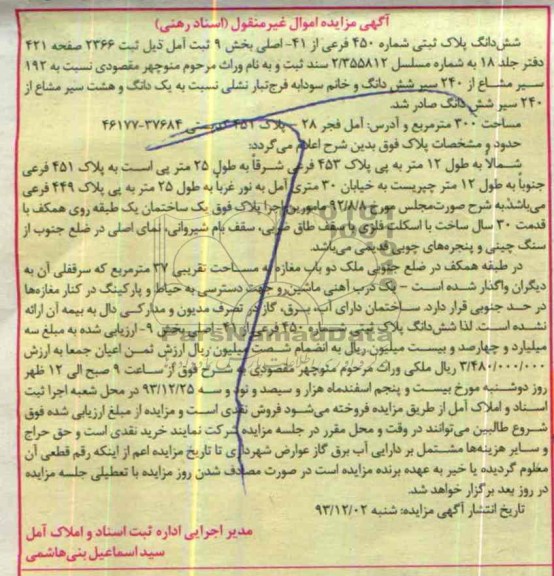 آگهی مزایده اموال غیرمنقول (اسناد رهنی)
شش‌دانگ پلاک ثبتی شماره ۴۵۰ فرعی از ۴۱- اصلی بخش ۹ ثبت آمل ذیل ثبت ۲۳۶۶ صفحه ۴۲۱
دفتر جلد ۱۸ به شماره مسلسل ۲/۳۵۵۸۱۲ سند ثبت و به نام وراث مرحوم منوچهر مقصودی نسبت به ۱۹۲
سیر مشاع از ۲۴۰ سیر شش دانگ و خانم سودابه فرج‌تبار نشلی نسبت به یک دانگ و هشت سیر مشاع از
۲۴۰ سیر شش دانگ صادر شد.
مساحت ۳۰۰ مترمربع و آدرس: آمل فجر ۲۸ – پلاک ۴۵۱ کدپستی ۳۷۶۸۴-۴۶۱۷۷
حدود و مشخصات پلاک فوق بدین شرح اعلام می‌گردد:
شمالاً به طول ۱۲ متر به پی پلاک ۴۵۳ فرعی شرقاً به طول ۲۵ متر پی است به پلاک ۴۵۱ فرعی
جنوباً به طول ۱۲ متر چپریست به خیابان ۳۰ متری آمل به نور غرباً به طول ۲۵ متر به پی پلاک ۴۴۹ فرعی
می‌باشد به شرح صورت‌مجلس مورخ ۹۲/۸/۸ مامورین اجرا پلاک فوق یک ساختمان یک طبقه روی همکف با
قدمت ۳۰ سال ساخت با اسکلت فلزی با سقف طاق ضربی، سقف بام شیروانی، نمای اصلی در ضلع جنوب از
سنگ چینی و پنجره‌های چوبی قدیمی می‌باشد.
در طبقه همکف در ضلع جنوبی ملک دو باب مغازه به مساحت تقریبی ۳۷ مترمربع که سرقفلی آن به
دیگران واگذار شده است – یک درب آهنی ماشین‌رو جهت دسترسی به حیاط و پارکینگ در کنار مغازه‌ها
در حد جنوبی قرار دارد. ساختمان دارای آب، برق، گاز در تصرف مدیون و مدارکی دال به بیمه آن ارائه
نشده است. لذا شش‌دانگ پلاک ثبتی شماره ۴۵۰ فرعی از ۴۱ اصلی بخش ۹- ارزیابی شده به مبلغ سه
میلیارد و چهارصد و بیست میلیون ریال به انضمام شصت میلیون ریال ارزش ثمن اعیان جمعا به ارزش
۳/۴۸۰/۰۰۰/۰۰۰ ریال ملکی وراث مرحوم منوچهر مقصودی به شرح فوق از ساعت ۹ صبح الی ۱۲ ظهر
روز دوشنبه مورخ بیست و پنجم اسفندماه هزار و سیصد و نود و سه ۹۳/۱۲/۲۵ در محل شعبه اجرا ثبت
اسناد و املاک آمل از طریق مزایده فروخته می‌شود فروش نقدی است و مزایده از مبلغ ارزیابی شده فوق
شروع طالبین می‌توانند در وقت و محل مقرر در جلسه مزایده شرکت نمایند خرید نقدی است و حق حراج
و سایر هزینه‌ها مشتمل بر دارایی آب برق گاز عوارض شهرداری تا تاریخ مزایده اعم از اینکه رقم قطعی آن
معلوم گردیده یا خیر به عهده برنده مزایده است در صورت مصادف شدن روز مزایده با تعطیلی جلسه مزایده
در روز بعد برگزار خواهد شد.
تاریخ انتشار آگهی مزایده: شنبه ۹۳/۱۲/۰۲
مدیر اجرایی اداره ثبت اسناد و املاک آمل
سید اسماعیل بنی‌هاشمی